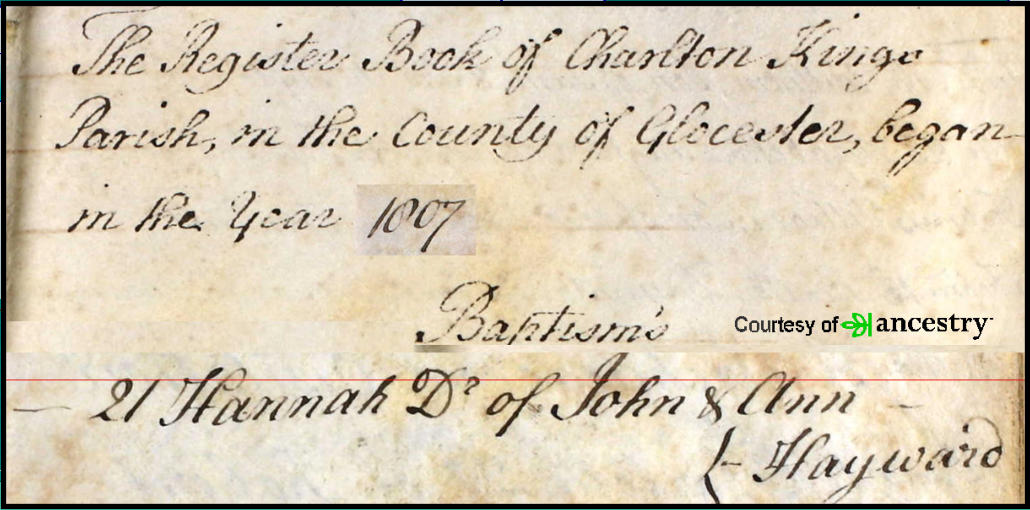 The Register Book of Charlton Kings
Parish, in the County of Glocester, began
in the Year 1807
Baptism's
Courtesy of ancestry
— 21 Hannah Dr of John & Ann —
(– Hayward